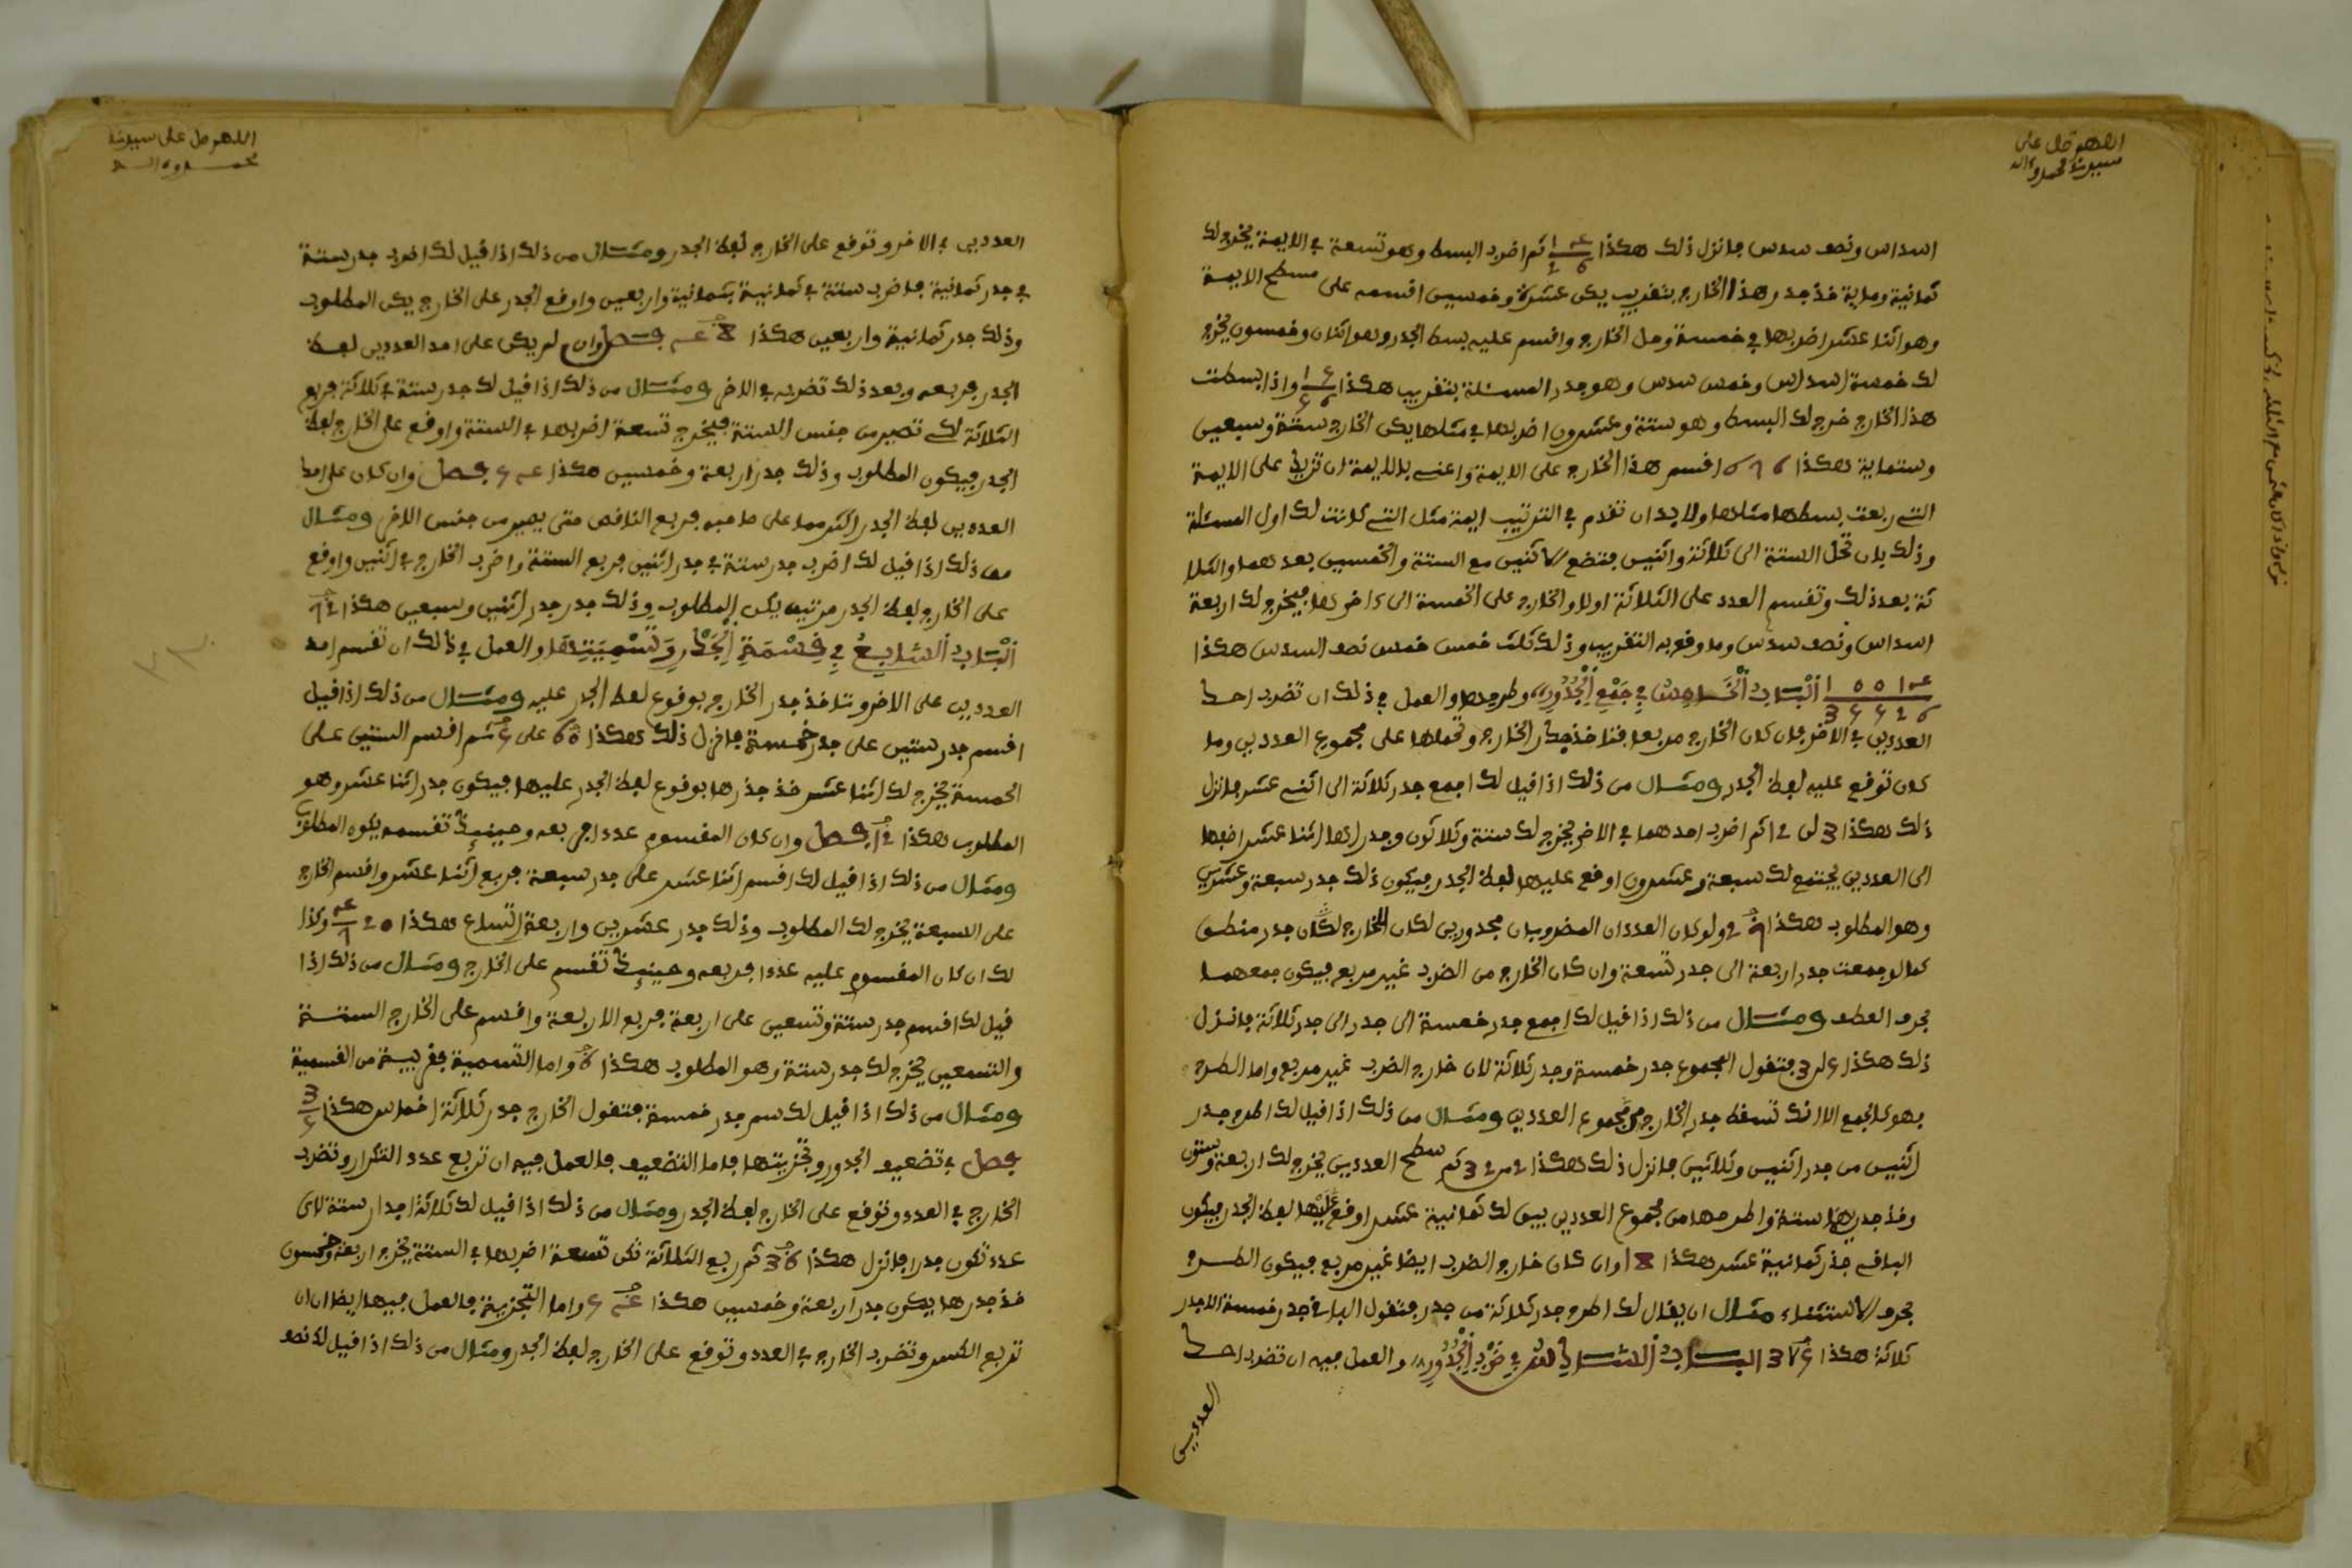 اللهم صل على
سيدنا محمد وآله
اسداس ونصف سدس فانزل ذلك هكذا ثم اضرب البسط وهو تسعة في الايمة يخرج لك
ثمانية وماية فخذ جدر هذا الخارج بتقريب يكن عشرة وخمسين اقسمه على مسطح الايمة
وهو اثنا عشر اضربها في خمسة وحل الخارج واقسم عليه بسط الجدر وهو اثنان وخمسون يخرج
لك خمسة اسداس وخمس سدس وهو جدر المسئلة بتقريب هكذا واذا بسطت
هذا الخارج خرج لك البسط وهو ستة وعشرون اضربها في مثلها يكن الخارج ستة وسبعين
وستماية هكذا 676 اقسم هذا الخارج على الايمة واعني بالايمة ان تزيد على الايمة
التي ربعت بسطها مثلها ولا بد ان تقدم في الترتيب ايمة مثل التي كانت لك اول المسئلة
وذلك بان تحل الستة الى ثلاثة واثنين فتضع الاثنين مع الستة والخمسين بعدهما والثلا
ثة بعد ذلك وتقسم العدد على الثلاثة اولا والخارج على الخمسة الى اخرها فيخرج لك اربعة
اسداس ونصف سدس وما وقع به التقريب وذلك ثلث خمس خمس نصف السدس هكذا
الباب الخامس في جمع الجدور وطرحها والعمل في ذلك ان تضرب احد
العددين في الاخر فان كان الخارج مربعا فتاخذ جدر الخارج وتحملها على مجموع العددين وما
كان توقع عليه لفظ الجدر ومثال من ذلك اذا قيل لك اجمع جدر ثلاثة الى اثنى عشر فانزل
ذلك هكذا 3 الى 12 ثم اضرب احدهما في الاخر يخرج لك ستة وثلاثون وجدراها اثنا عشر اضفها
الى العددين يجتمع لك سبعة وعشرون اوقع عليها لفظ الجدر فيكون ذلك جدر سبعة وعشرين
وهو المطلوب هكذا 27 ولو كان العددان المضروبان مجدورين لكان الخارج لكان جدر منطق
كما لو جمعت جدر اربعة الى جدر تسعة وان كان الخارج من الضرب غير مربع فيكون جمعهما
بحرف العطف ومثال من ذلك اذا قيل لك اجمع جدر خمسة الى جدر الى جدر ثلاثة فانزل
ذلك هكذا فتقول المجموع جدر خمسة وجدر ثلاثة لان خارج الضرب غير مربع واما الطرح
فهو كالجمع الا انك تسقط جدر الخارج من مجموع العددين ومثال من ذلك اذا قيل لك اطرح جدر
اثنين من جدر اثنين وثلاثين فانزل ذلك هكذا 2 من 32 ثم سطح العددين يخرج لك اربعة وستون
وخذ جدريها ستة واطرحها من مجموع العددين يبق لك ثمانية عشر اوقع عليها لفظ الجدر فيكون
الباقي جذر ثمانية عشر هكذا 18 وان كان خارج الضرب ايضا غير مربع فيكون الطرح
بحرف الاستثناء مثال ان يقال لك اطرح جدر ثلاثة من جدر فتقول الباقي جدر خمسة الا جدر
ثلاثة هكذا الباب السادس في ضرب الجدور والعمل فيه ان تضرب احد
العددين
اللهم صل على سيدنا
محمد وءاله
العددين في الاخر وتوقع على الخارج لفظ الجدر ومثال من ذلك اذا قيل لك اضرب جدر ستة
في جدر ثمانية فاضرب ستة في ثمانية بثمانية واربعين واوقع الجدر على الخارج يكن المطلوب
وذلك جدر ثمانية واربعين هكذا 48 فصل وان لم يكن على احد العددين لفظ
الجدر فربعه وبعد ذلك تضربه في الاخر ومثال من ذلك اذا قيل لك جدر ستة في ثلاثة فربع
الثلاثة لكي تصير من جنس الستة فيخرج تسعة اضربها في الستة واوقع على الخارج لفظ
الجدر فيكون المطلوب وذلك جدر اربعة وخمسين هكذا 54 فصل وان كان على احد
العددين لفظ الجدر اكثر مما على صاحبه فربع الناقص حتى يصير من جنس الاخر ومثال
من ذلك اذا قيل لك اضرب جدر ستة في جدر اثنين فربع الستة واضرب الخارج في اثنين واوقع
على الخارج لفظ الجدر مرتين يكن المطلوب وذلك جدر جدر اثنين وسبعين هكذا 72
الباب السابع في قسمة الجدر وتسميتها والعمل في ذالك ان تقسم احد
العددين على الاخر وتاخذ جدر الخارج بوقوع لفظ الجدر عليه ومثال من ذلك اذا قيل
اقسم جدر ستين على جدر خمسة فانزل ذلك هكذا 60 على 5 ثم اقسم الستين على
الخمسة يخرج لك اثنا عشر فخذ جذرها بوقوع لفظ الجدر عليها فيكون جدر اثنا عشر وهو
المطلوب هكذا 12 فصل وان كان المقسوم عددا فربعه وحينئذ تقسمه يكون المطلوب
ومثال من ذلك اذا قيل لك اقسم اثنا عشر على جدر سبعة فربع اثنا عشر واقسم الخارج
على السبعة يخرج لك المطلوب وذلك جدر عشرين واربعة اتساع هكذا وكذا
لك ان كان المقسوم عليه عددا فربعه وحينئذ تقسم على الخارج ومثال من ذلك اذا
قيل لك اقسم جدر ستة وتسعين على اربعة فربع الاربعة واقسم على الخارج الستة
والتسعين يخرج لك جدر ستة وهو المطلوب هكذا 6 واما التسمية فقريبة من القسمة
ومثال من ذلك اذا قيل لك سم جدر خمسة فتقول الخارج جدر ثلاثة اخماس هكذا 3/5
فصل في تضعيف الجدور وتجزيتها فاما التضعيف فالعمل فيه ان تربع عدد التكرار وتضرب
الخارج في العدد وتوقع على الخارج لفظ الجدر ومثال من ذلك اذا قيل لك ثلاثة اجدار ستة لاي
عدد تكون جدرا فانزل هكذا 36 ثم ربع الثلاثة تكن تسعة اضربها في الستة يخرج اربعة وخمسون
فخذ جدرها يكون جدر اربعة وخمسين هكذا 54 واما التجزية فالعمل فيها ايضا ان ان
تربع الكسر وتضرب الخارج في العدد وتوقع على الخارج لفظ الجدر ومثال من ذلك اذا قيل لك نصف